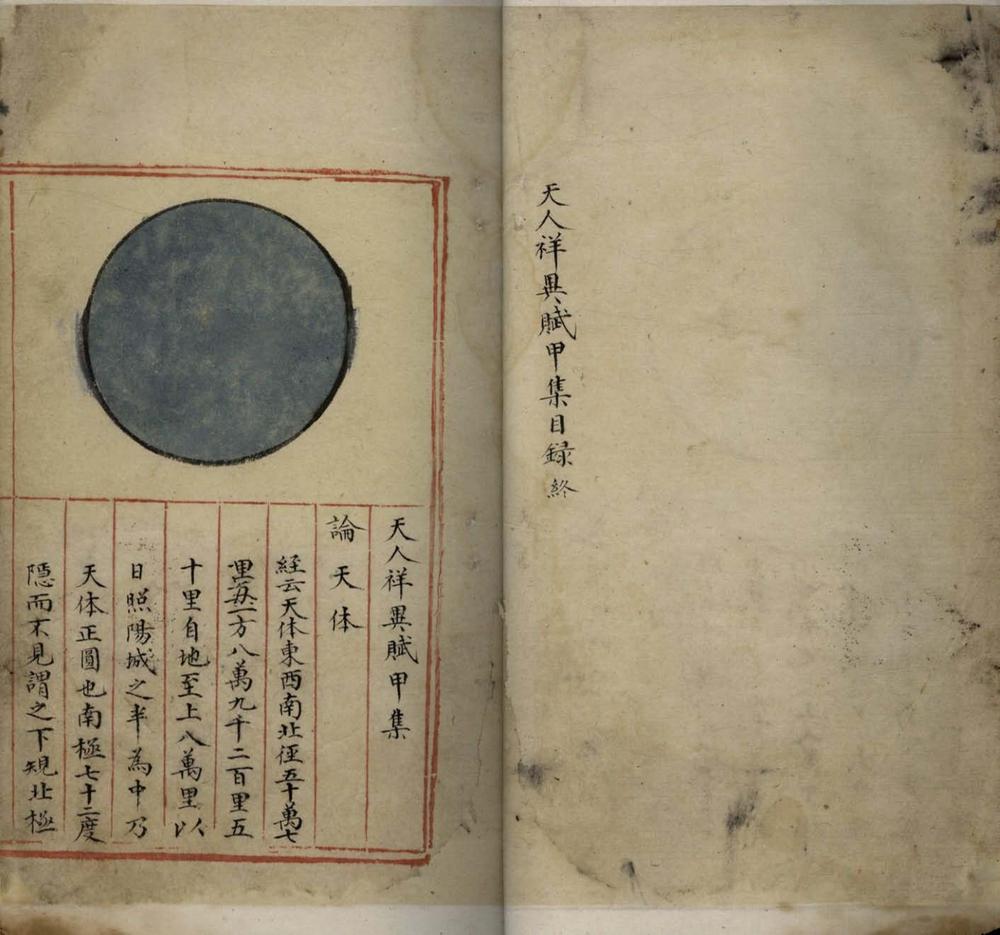 天人祥異賦甲集目録終
天人祥異賦甲集
論天体
経云天体東西南北徑五十萬七
里每一方八萬九千二百里五
十里自地至上八萬里以
日照陽城之半為中乃
天体正圓也南極七十二度
隠而不見謂之下規北極